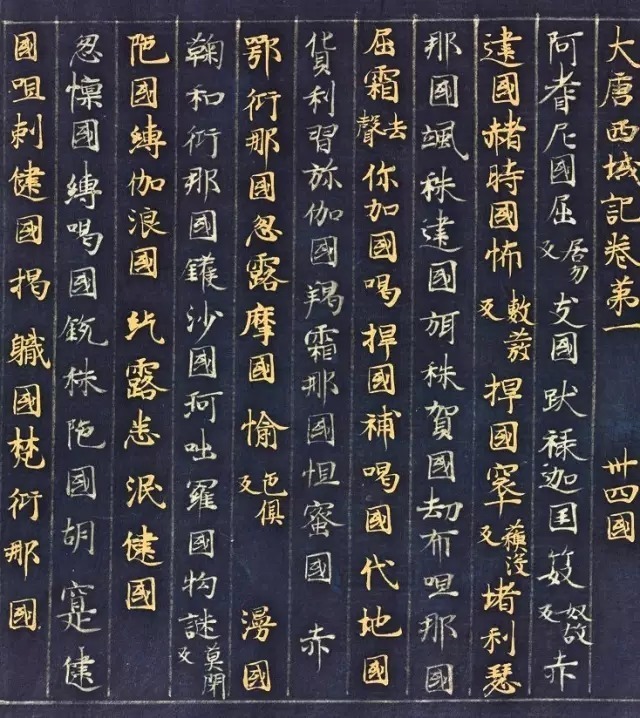 大唐西域記卷第一 卅四國
阿耆尼國屈居勿反支國 跋祿迦国 笯奴故反赤
建國赭時國怖敷發反捍國窣蘓沒反堵利瑟
那國颯秣建國弭秣賀國劫布呾那國
屈霜去聲你加國喝捍國補喝國代地國
貨利習弥伽國羯霜那國怛蜜國 赤
鄂衍那國忽露摩國 愉色俱反漫國
鞠和衍那國鑊沙國珂咄羅國拘謎莫閇反
陁國縛伽浪國 紇露悉泯健國
忽懍國縛喝國銳秣陁國胡寔健
國呾剌健國揭職國梵衍那國